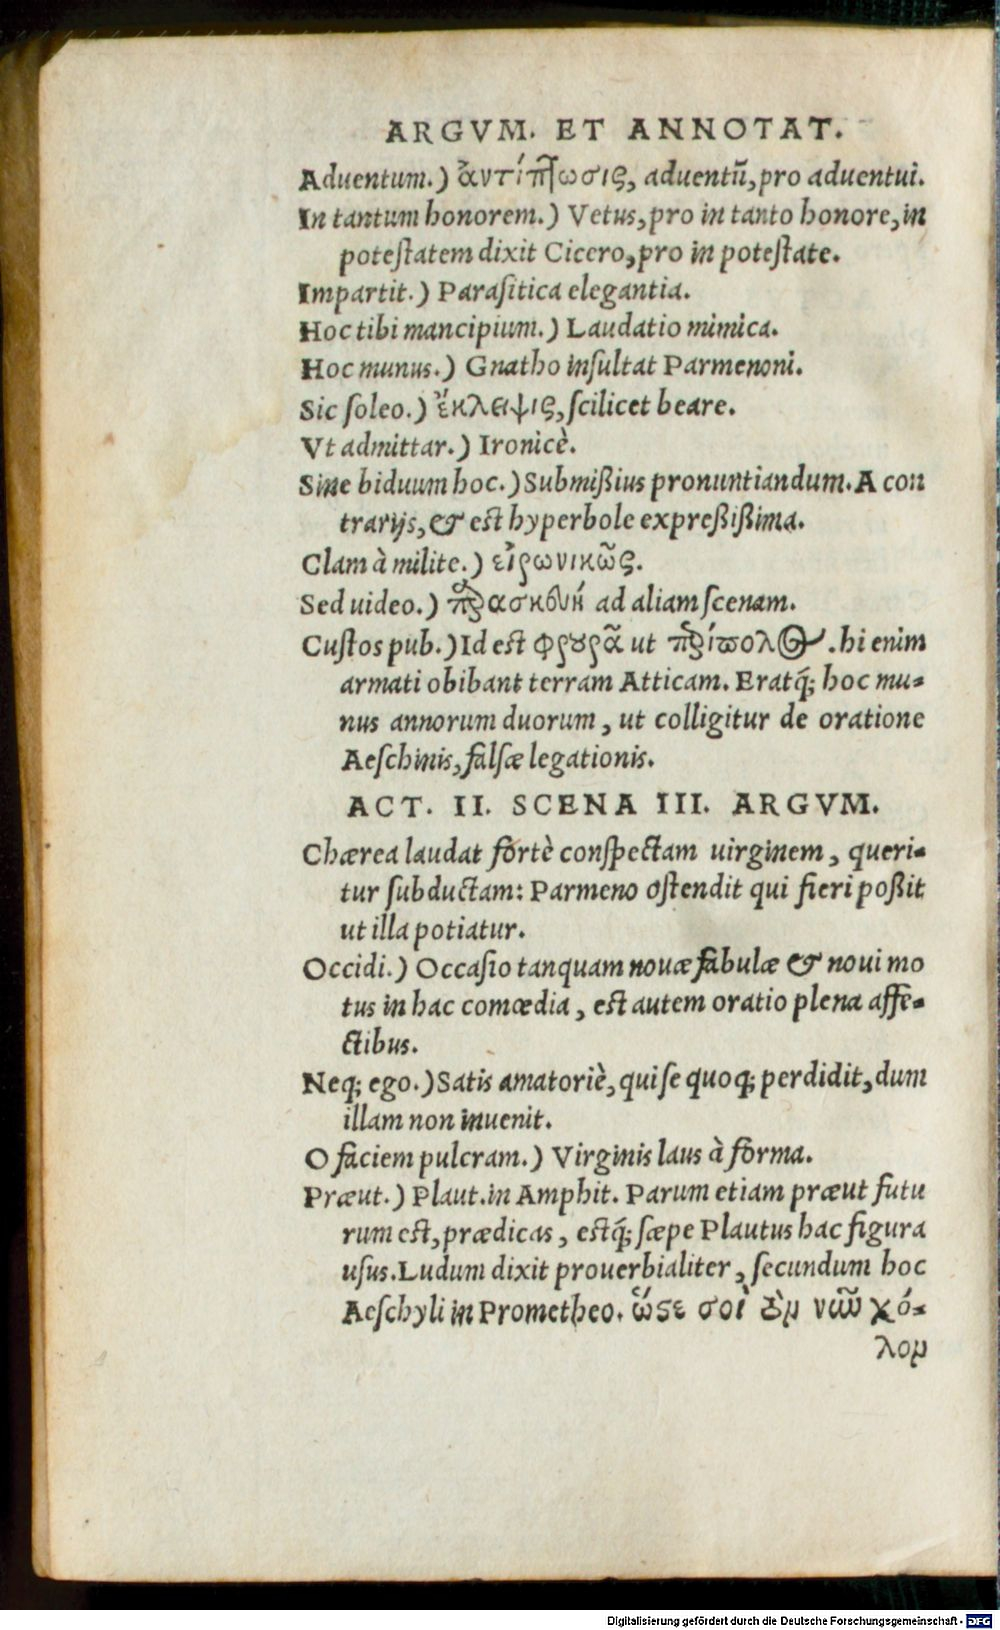 ARGVM. ET ANNOTAT.
Aduentum.) ἀντίπτωσις, aduentũ, pro aduentui.
In tantum honorem.) Vetus, pro in tanto honore, in
poteſtatem dixit Cicero, pro in poteſtate.
Impartit.) Paraſitica elegantia.
Hoc tibi mancipium.) Laudatio mimica.
Hoc munus.) Gnatho inſultat Parmenoni.
Sic ſoleo.) ἔκλειψις, ſcilicet beare.
Vt admittar.) Ironicè.
Sine biduum hoc.) Submißius pronuntiandum. A con
trarijs, & est hyperbole expreßißima.
Clam à milite.) εἰρωνικῶς.
Sed uideo.) παρασκευὴ ad aliam ſcenam.
Cuſtos pub.) Id est φρουρᾶ ut περίπολος. hi enim
armati obibant terram Atticam. Eratq́; hoc mu-
nus annorum duorum, ut colligitur de oratione
Aeſchinis, falſæ legationis.
ACT. II. SCENA III. ARGVM.
Chærea laudat fortè conſpectam uirginem, queri-
tur ſubductam: Parmeno oſtendit qui fieri poßit
ut illa potiatur.
Occidi.) Occaſio tanquam nouæ fabulæ & noui mo
tus in hac comœdia, est autem oratio plena affe-
ctibus.
Neq; ego.) Satis amatoriè, qui ſe quoq; perdidit, dum
illam non inuenit.
O faciem pulcram.) Virginis laus à forma.
Præut.) Plaut. in Amphit. Parum etiam præut futu
rum est, prædicas, estq́; ſæpe Plautus hac figura
uſus. Ludum dixit prouerbialiter, ſecundum hoc
Aeſchyli in Prometheo. ὥστε σοὶ τὸν νῦν χό-
λον
Digitalisierung gefördert durch die Deutsche Forschungsgemeinschaft - DFG